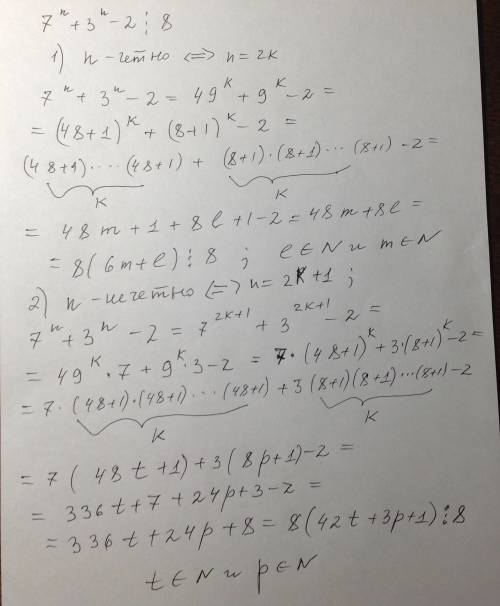 7ⁿ + 3ⁿ - 2 ⋮ 8
1) n - четно <=> n = 2k
7ⁿ + 3ⁿ - 2 = 49ᵏ + 9ᵏ - 2 =
= (48+1)ᵏ + (8+1)ᵏ - 2 =
(48+1)····(48+1) + (8+1)·(8+1)···(8+1) - 2 =
k k
= 48m + 1 + 8l + 1 - 2 = 48m + 8l =
= 8(6m+l) ⋮ 8 ; l ∈ N и m ∈ N
2) n - нечетно <=> n = 2k+1 ;
7ⁿ + 3ⁿ - 2 = 7²ᵏ⁺¹ + 3²ᵏ⁺¹ - 2 =
= 49ᵏ · 7 + 9ᵏ · 3 - 2 = 7·(48+1)ᵏ + 3·(8+1)ᵏ - 2 =
= 7·(48+1)·(48+1)···(48+1) + 3(8+1)(8+1)···(8+1) - 2
k k
= 7(48t+1) + 3(8p+1) - 2 =
= 336t + 7 + 24p + 3 - 2 =
= 336t + 24p + 8 = 8(42t + 3p + 1) ⋮ 8
t ∈ N и p ∈ N